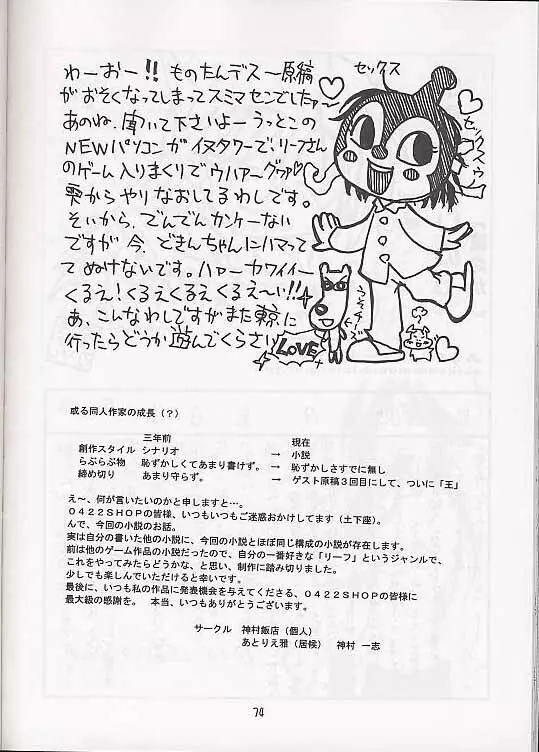 わーおー!! ものたんデス〜原稿
がおそくなってしまってスミマセンでしたァ〜
あのね、聞いて下さいよーうっとこの
NEWパソコンがイヌタワーで、リーフさん
のゲーム入りまくりでウハァ〜グヮァ♡
雫からやりなおしてるわしです。
そいから、でんでんカンケーない
ですが今、どきんちゃんにハマって
てぬけないです。ハァーカワイイー
くるえ!くるえくるえくるえ〜い!!
あ、こんなわしですがまた東京に
行ったらどうか遊んでくらさい
セックス
セックスゥ
LOVE
或る同人作家の成長(?)
三年前 現在
創作スタイル シナリオ → 小説
らぶらぶ物 恥ずかしくてあまり書けず。 → 恥ずかしさすでに無し
締め切り あまり守らず。 → ゲスト原稿3回目にして、ついに「王」
え〜、何が言いたいのかと申しますと…。
0422SHOPの皆様、いつもいつもご迷惑おかけしてます(土下座)。
んで、今回の小説のお話。
実は自分の書いた他の小説に、今回の小説とほぼ同じ構成の小説が存在します。
前は他のゲーム作品の小説だったので、自分の一番好きな「リーフ」というジャンルで、
これをやってみたらどうかな、と思い、制作に踏み切りました。
少しでも楽しんでいただけると幸いです。
最後に、いつも私の作品に発表機会を与えてくださる、0422SHOPの皆様に
最大級の感謝を。 本当、いつもありがとうございます。
サークル 神村飯店(個人)
あとりえ雅(居候) 神村 一志
74